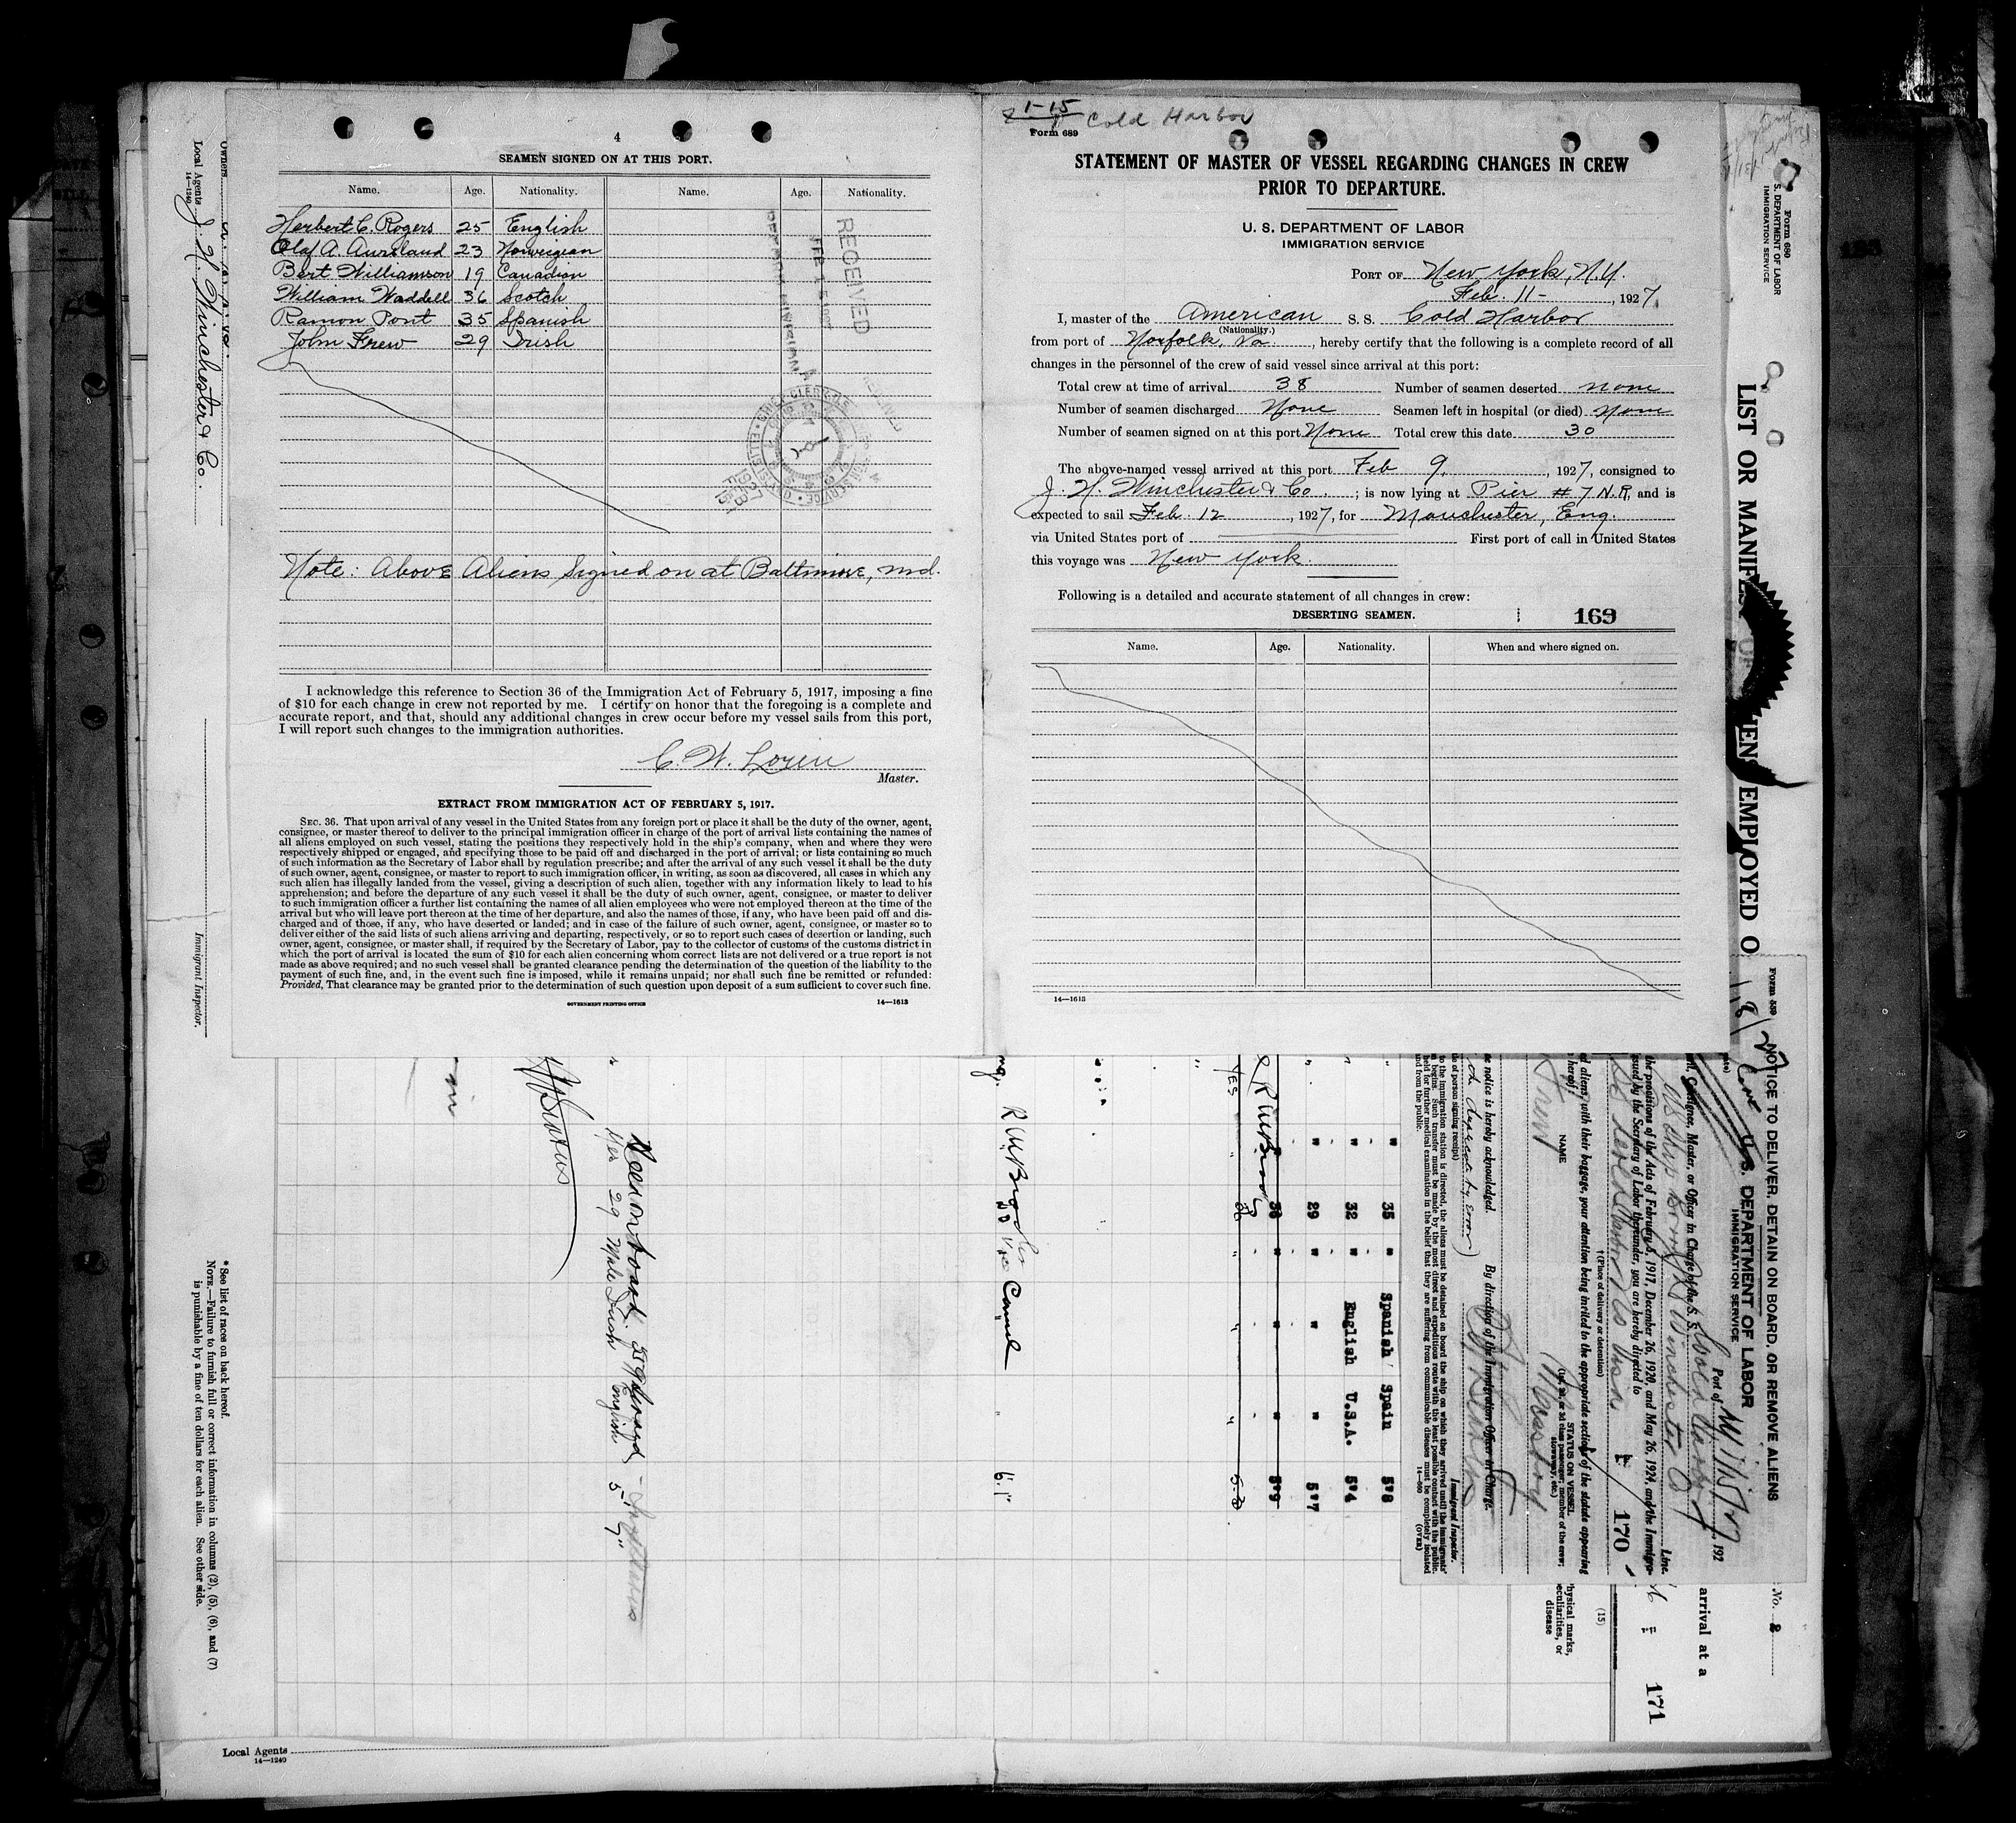 4
SEAMEN SIGNED ON AT THIS PORT.
Name. Age. Nationality. Name. Age. Nationality.
Herbert C. Rogers 25 English
Olaf A. Aursland 23 Norweigian
Bert Williamson 19 Canadian
William Waddell 36 Scotch
Ramon Pont 35 Spanish
John Frew 29 Irish
RECEIVED
Note: Above Aliens Signed on at Baltimore, Md.
I acknowledge this reference to Section 36 of the Immigration Act of February 5, 1917, imposing a fine
of $10 for each change in crew not reported by me. I certify on honor that the foregoing is a complete and
accurate report, and that, should any additional changes in crew occur before my vessel sails from this port,
I will report such changes to the immigration authorities.
C. W.
Master.
EXTRACT FROM IMMIGRATION ACT OF FEBRUARY 5, 1917.
SEC. 36. That upon arrival of any vessel in the United States from any foreign port or place it shall be the duty of the owner, agent,
consignee, or master thereof to deliver to the principal immigration officer in charge of the port of arrival lists containing the names of
all aliens employed on such vessel, stating the positions they respectively hold in the ship's company, when and where they were
respectively shipped or engaged, and specifying those to be paid off and discharged in the port of arrival; or lists containing so much
of such information as the Secretary of Labor shall by regulation prescribe; and after the arrival of any such vessel it shall be the duty
of such owner, agent, consignee, or master to report to such immigration officer, in writing, as soon as discovered, all cases in which any
such alien has illegally landed from the vessel, giving a description of such alien, together with any information likely to lead to his
apprehension; and before the departure of any such vessel it shall be the duty of such owner, agent, consignee, or master to deliver
to such immigration officer a further list containing the names of all alien employees who were not employed thereon at the time of the
arrival but who will leave port thereon at the time of her departure, and also the names of those, if any, who have been paid off and dis-
charged and of those, if any, who have deserted or landed; and in case of the failure of such owner, agent, consignee, or master so to
deliver either of the said lists of such aliens arriving and departing, respectively, or so to report such cases of desertion or landing, such
owner, agent, consignee, or master shall, if required by the Secretary of Labor, pay to the collector of customs of the customs district in
which the port of arrival is located the sum of $10 for each alien concerning whom correct lists are not delivered or a true report is not
made as above required; and no such vessel shall be granted clearance pending the determination of the question of the liability to the
payment of such fine, and, in the event such fine is imposed, while it remains unpaid; nor shall such fine be remitted or refunded:
Provided, That clearance may be granted prior to the determination of such question upon deposit of a sum sufficient to cover such fine.
GOVERNMENT PRINTING OFFICE 14—1613
1-15
Cold Harbor
Form 689
STATEMENT OF MASTER OF VESSEL REGARDING CHANGES IN CREW
PRIOR TO DEPARTURE.
U. S. DEPARTMENT OF LABOR
IMMIGRATION SERVICE
PORT OF New York, N.Y.
Feb. 11-, 1927.
I, master of the American S. S. Cold Harbor
(Nationality.)
from port of Norfolk, Va., hereby certify that the following is a complete record of all
changes in the personnel of the crew of said vessel since arrival at this port:
Total crew at time of arrival 38 Number of seamen deserted none
Number of seamen discharged None Seamen left in hospital (or died) None
Number of seamen signed on at this port None Total crew this date 30
The above-named vessel arrived at this port Feb 9, 1927, consigned to
J. H. Winchester & Co.; is now lying at Pier #7 N.R. and is
expected to sail Feb. 12, 1927, for Manchester, Eng.
via United States port of First port of call in United States
this voyage was New York.
Following is a detailed and accurate statement of all changes in crew:
DESERTING SEAMEN. 169
Name. Age. Nationality. When and where signed on.
14—1613
Owners
Local Agents J. H. Winchester & Co.
14—1240
Immigrant Inspector.
Form 680
U. S. DEPARTMENT OF LABOR
IMMIGRATION SERVICE
LIST OR MANIFEST OF ALIENS EMPLOYED O
Form 539
NOTICE TO DELIVER, DETAIN ON BOARD, OR REMOVE ALIENS
U. S. DEPARTMENT OF LABOR
IMMIGRATION SERVICE
Port of
192
Consignee, Master, or Officer in Charge of the S. S.
Line.
the provisions of the Acts of February 5, 1917, December 26, 1920, and May 26, 1924, and the Immigra-
ssued by the Secretary of Labor thereunder, you are hereby directed to
170
(Place of delivery or detention)
d aliens, with their baggage, your attention being invited to the appropriate sections of the statute appearing
hereof:
NAME
STATUS ON VESSEL
Frew
e notice is hereby acknowledged.
By direction of the Immigration Officer in Charge.
Immigrant Inspector.
(OVER)
No. 2
arrival at a
171
(15)
hysical marks,
eculiarities, or
disease
35 Spanish Spain 5'8
32 English U.S.A. 5'4
29 5'7
38 5'9
Yes 29 Male Irish English 5' 7"
* See list of races on back hereof.
NOTE.—Failure to furnish full or correct information in columns (2), (5), (6), and (7)
is punishable by a fine of ten dollars for each alien. See other side.
Local Agents
14—1240